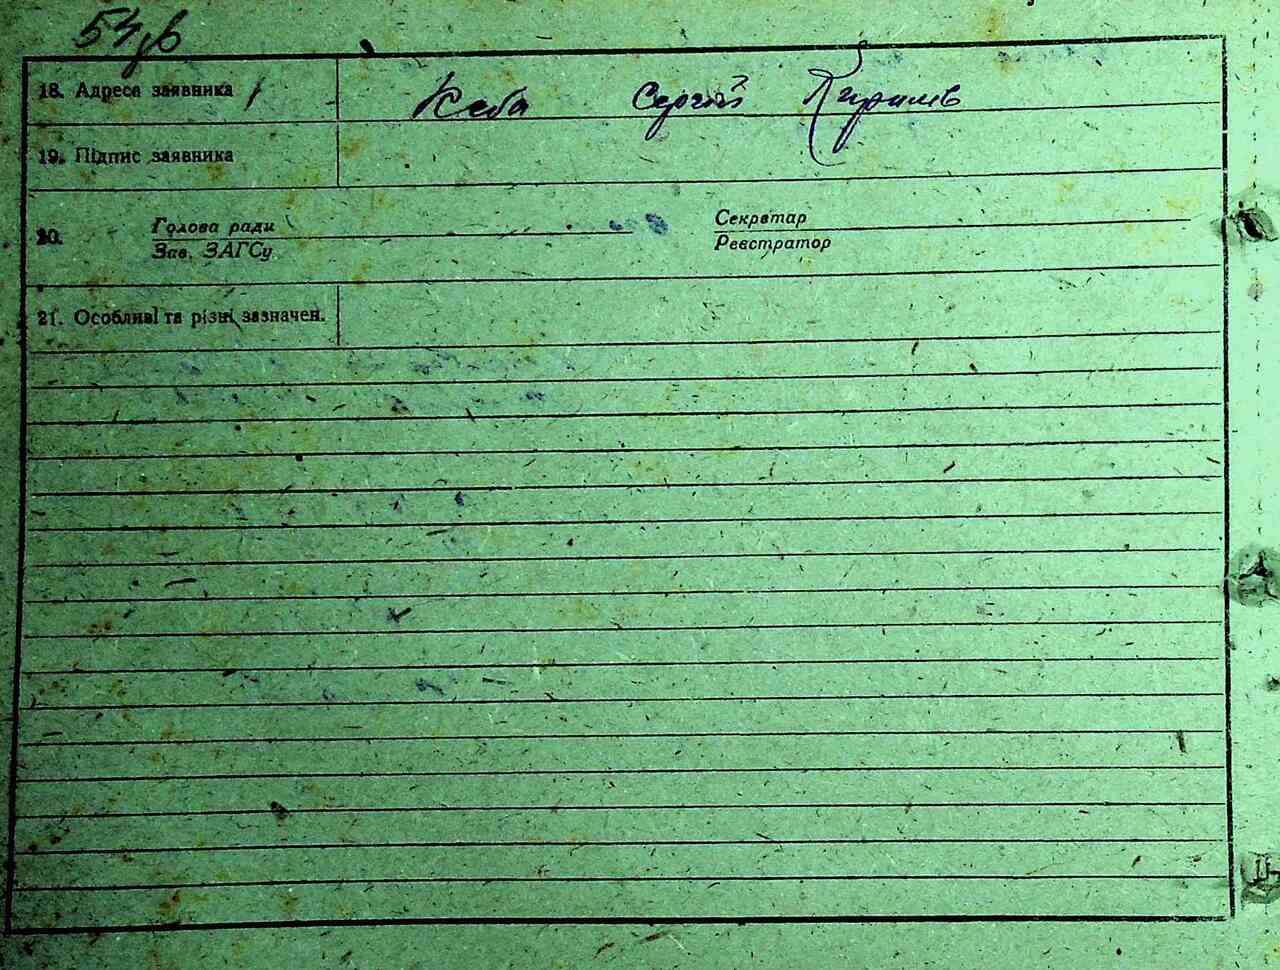 54зв
18. Адреса заявника
Кеба Сергій Кирилів
19. Підпис заявника
20.
Голова ради
Зав. ЗАГСу
Секретар
Реєстратор
21. Особливі та різні зазначен.